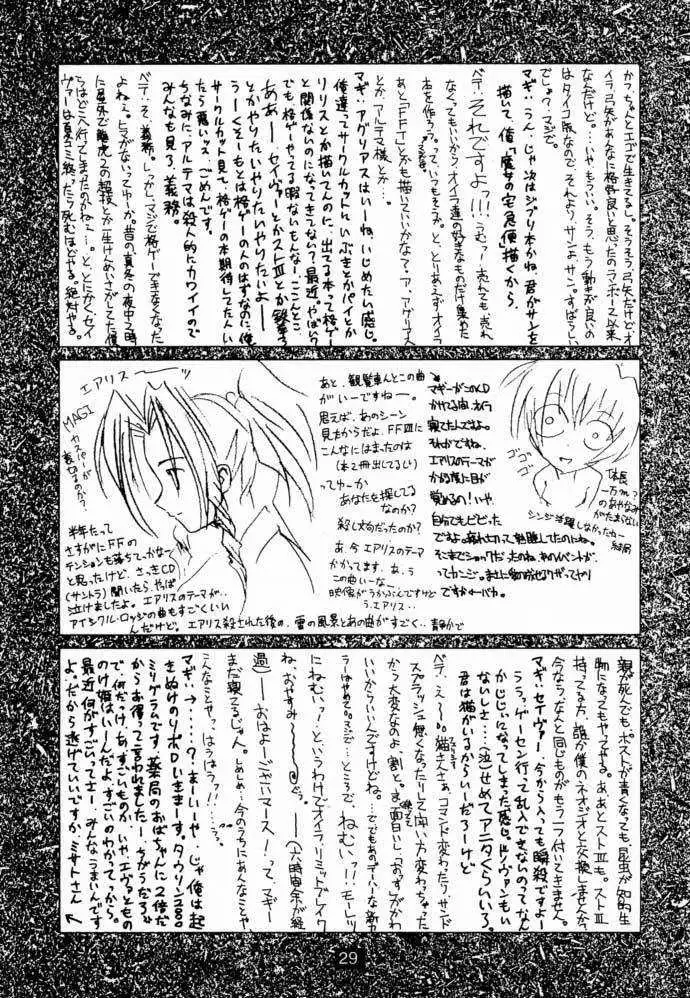 かつ、ちゃんとエゴで生きてるし。そうそう、弓矢だけど、オ
イラ弓矢があんなに格好良いと思ったのランボー以来
なんだけど。…いや、もういい。そう、もう動きが良いの
はタイコ版なので、それより、サンよ、サン。すばらしい
でしょ?マジで。
マギ:うん。じゃ次はジブリ本かね、君がサンを
描いて、俺「魔女の宅急便」描くから。
ベテ:それですよ!!!うむっ!売れても、売れ
なくてもいいから、オイラ達の好きなものだけ集めた
本を作ろう。って、いつもそうか。と、とりあえずオイラ
あと「FFT」とかも描いていいかな?ア、アグリアス
とか、アルテマ様とか。
マギ:アグリアスはいーね、いじめたい感じ。
俺達ってサークルカットにいぶきとかパイとか
リリスとか描いてんのに、出てる本って格ゲー
と関係ないのになってきてない?最近。やばい?
でも格ゲーやってる暇ないもんなー、ここんとこ
ああー、セイヴァーとかストIIIとか鉄拳3
とかやりたいやりたいやりたいよー
うーくそーもとは格ゲーの人のはずなのに、俺
サークルカット見て、格ゲーの本期待してた人い
たら薄いッス ごめんです。
ちなみに、アルテマは殺人的にカワイイので
みんなも見ろ、義務。
ベテ:そ、義務。しかし、マジで格ゲーできなくなった
よねぇ。ヒマがないってゆーか。昔の真冬の夜中2時
に意外で龍虎2の超技とか一生けんめいさがしてた俺
たちはどへ行ってしまったのかねぇ…。と、とにかく、セイ
ヴァーは夏コミ終ったら死ぬほどやる。絶対やる。
エアリス→
MAGI
カスパーが
裏切るのか?
半年たって
さすがにFFの
テンションも落ちてっかなて
と思ったけど、さっきCD
(サントラ)聞いたら、やば
泣けましたよ。エアリスのテーマが…
アイシクル・ロッジの曲もすごくいい
んだけど。エアリス殺された後の、雪の風景とあの曲がすごく…静かで
あと、観覧車んとこの曲
がいーですねー。
思えば、あのシーン
見たからだよ、FFVIIに
こんなにはまったのは
(本2冊出してるし)
ってゆーか
あなたを探してる
なのか?
殺し文句だったのか?
あ、今エアリスのテーマ
かかってます、あ、う
この曲いーなー
映像がうかぶんですけど
う、エアリス…
マギーがこのCD
かけてる間、オイラ
寝てたんですよ。
それがですね、
エアリスのテーマが
かかる度に目が
覚めるの!いや、
自分でもビビった
ですよ。疲れ切って熟睡してたのにね。
そこまでショックだったのね、あのイベントが。
ってカンジ。まさに
ですかーバカ。
ゴゴゴ
体長
一万m?
のあやなみ
がたまんない
シンジ活躍しなかったねー
結局
親が死んでも、ポストが青くなっても、昆虫が知的生
物になってもやってやる。あ、あとストIIIも。ストIII
持ってる方、誰か僕のネオジオと交換しませんか?
今なら、なんと同じものがもう一つ付いてきません。
マギ:セイヴァー、今から入っても瞬殺ですよー
ううっ、ゲーセン行って乱入できないのって、なん
かじじいになってしまった感じ。ドノヴァンもい
ないしさ…(泣)せめてアニタくらいいろ。
君は猫がいるからいーだろーけど
ベテ:え〜、猫さんさぁ、コマンド変わたり、サンド
スプラッシュ無くなったりして、闘い方変わっちゃった
から大変なのよ、割と。ま、面白いし、「おっす」がかわ
いいからいいんですけどね。…ででもあのデハーな新ウ
ラーはやめてーマジで…ところで、ねむい。!!モーレツ
にねむいっ!というわけでオイラ、リミットブレイク
ね、おやすみー (六時間余が経
過)ーおはよーございマース!って、マギー
まだ寝てるじゃん。しめしめ、今のうちにあんなことや
こんなことやっ。はうはうっ!!……
マギ:→…?まーいーや、じゃ俺は起
きぬけのリポDいきまーす。タウリン2000
ミリグラムです。薬局のおばちゃんに2倍だ
からお得って言われました。ーちがうだろっ
で、何だっけ、あ、すごいものか、いや、エヴァともの
のけ姫はいーんだよ、すごいのわかってっから。
最近、何がすごいってさー、みんなうまいんです
よ。だから逃げていいですか、ミサトさん
29